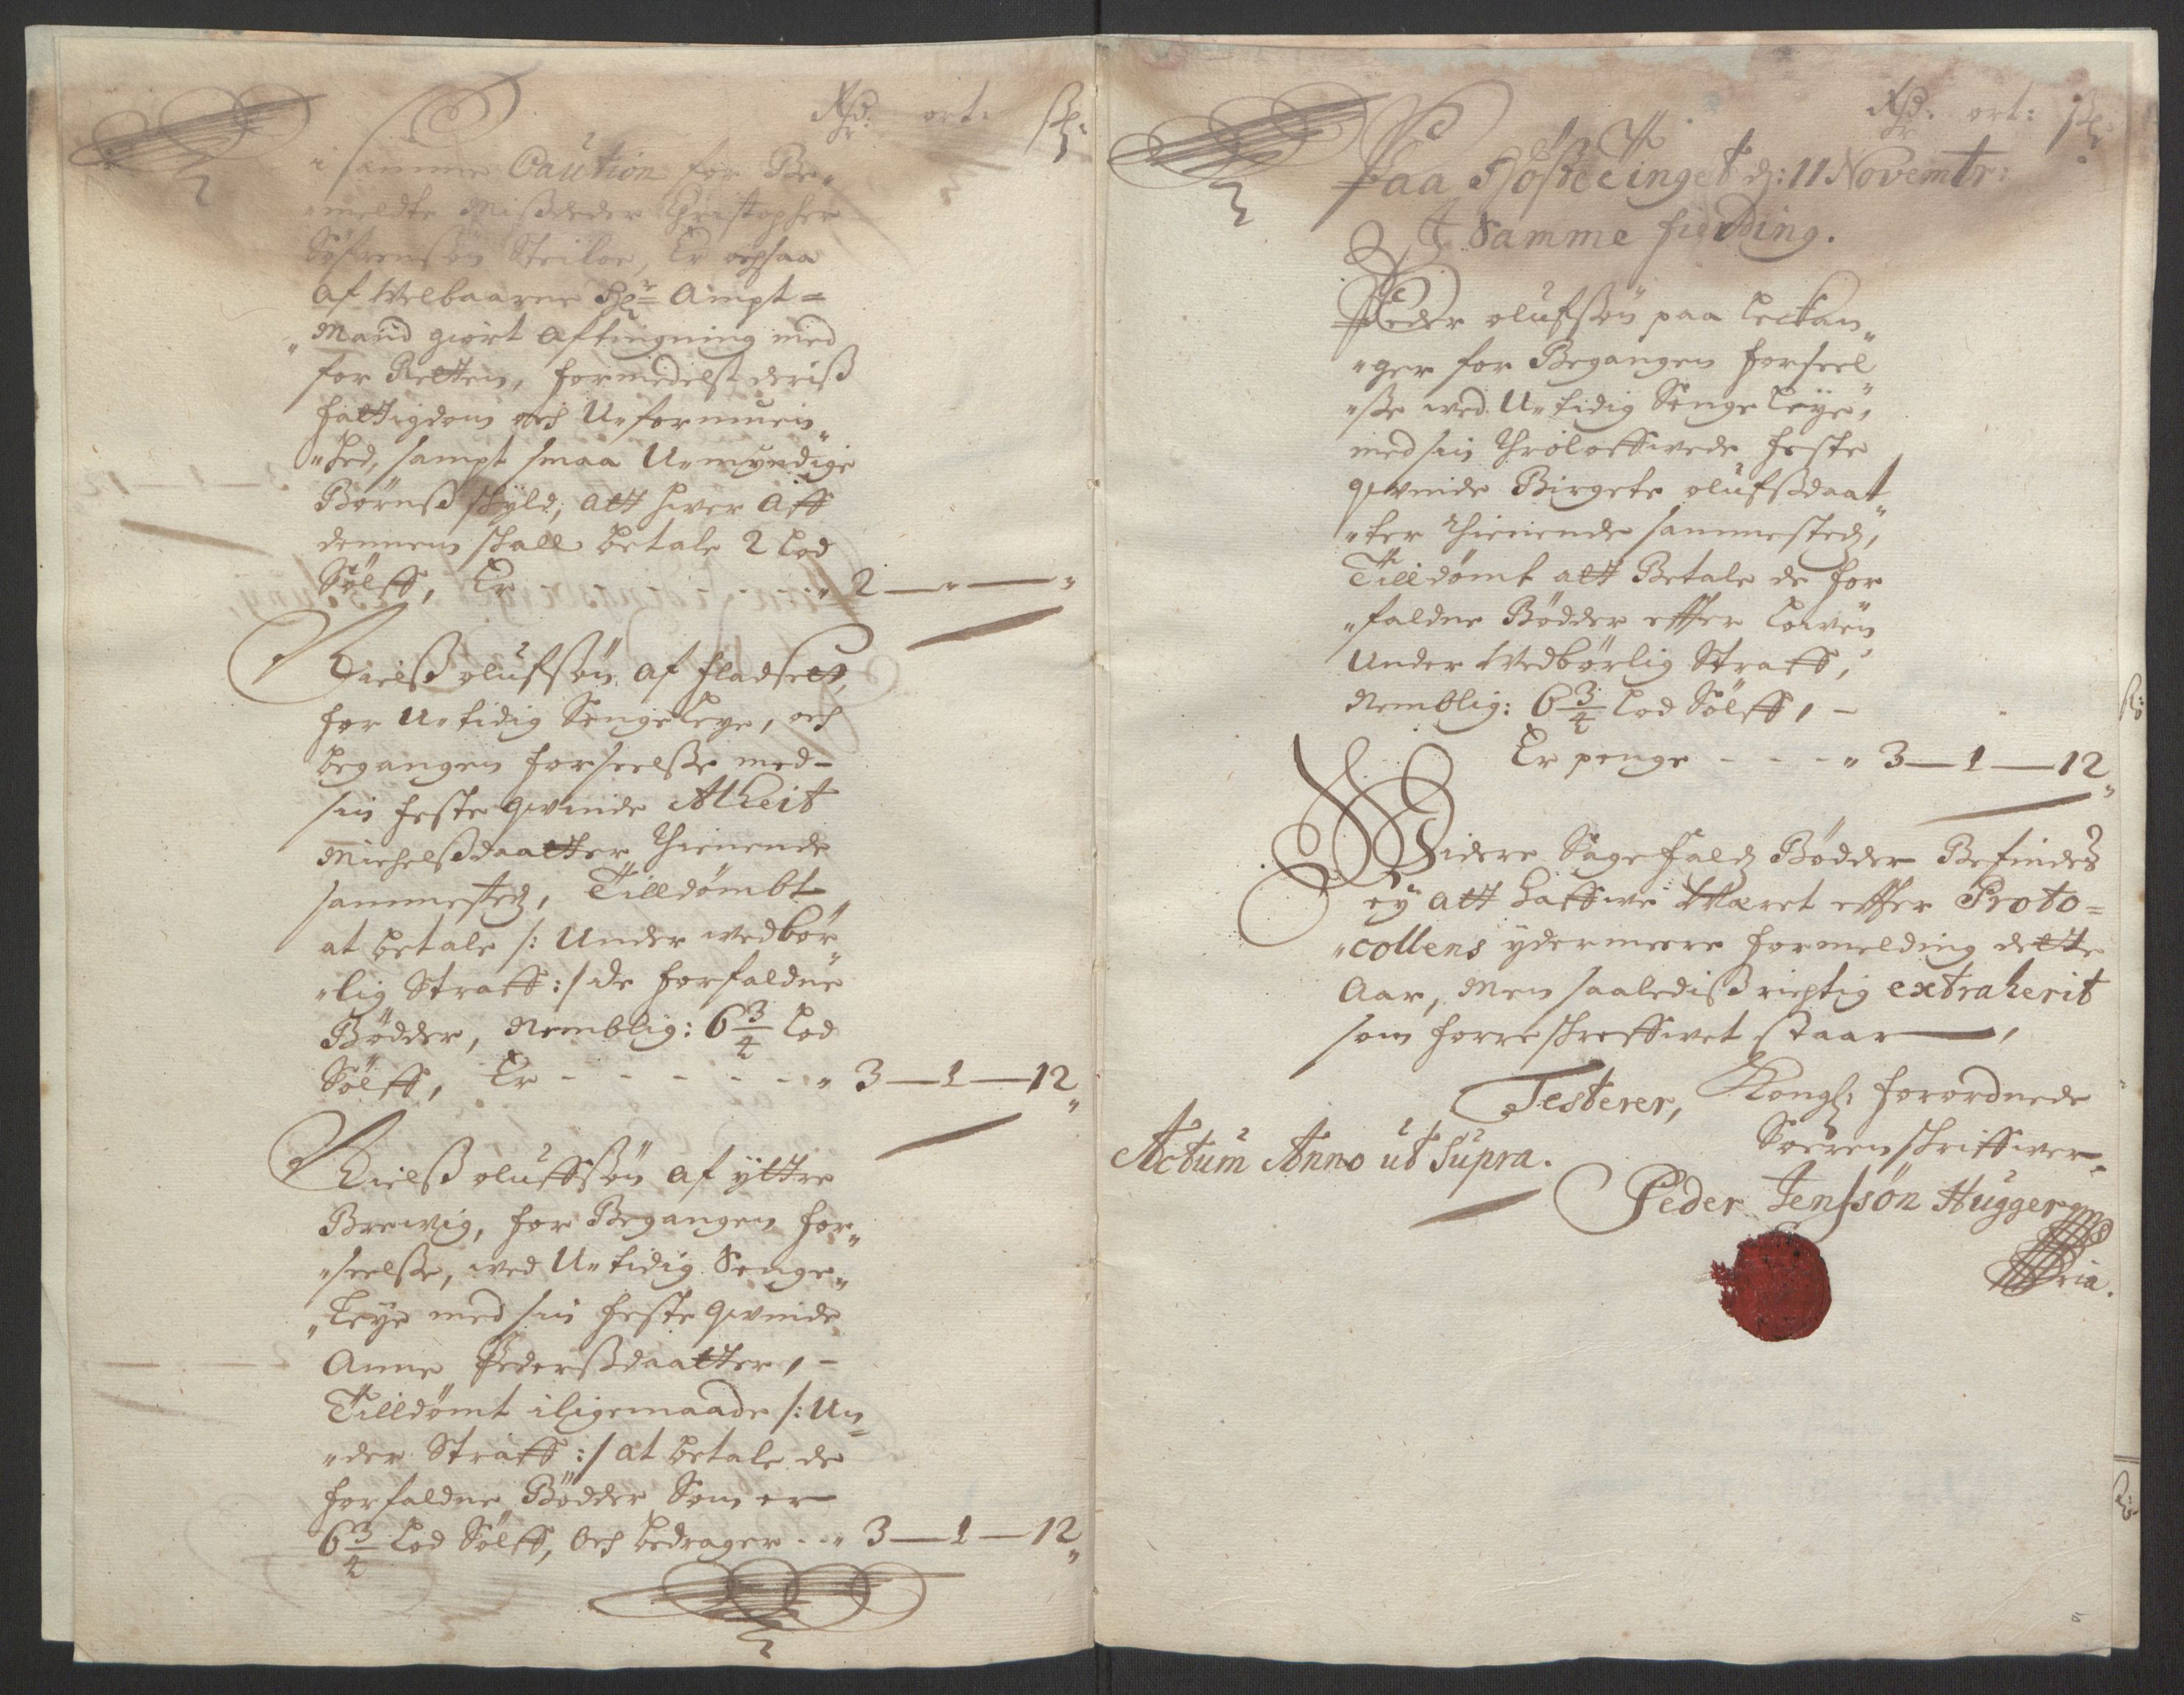 Rd: ort: sk:
i samme Caution for Be„
„meldte Misdeder Christopher
Söfrensøn Steiloe, Er ochsaa
af Welbaarne Hr: Ampt=
„Mand giort aftingning med
for Retten, formedelst deriß
fattigdom och U„formuen„
„hed, sampt smaa U„myndige
Børnß skyld, att hver aff
dennem skall betale 2 Lod
Sölff, Er - - - „ 2 — „ — „
Nielß olufsøn af Fladset,
for U„tidig Sengeleye, och
begangen forseelße med
sin feste qvinde Alheit
Michelßdaatter thienende
sammested, Tilldømbt
at betale /: Under wedbør„
„lig Straff :/ de forfaldne
Bødder, Nemblig: 6 3/4 Lod
Sölff, Er - - - - - - „ 3 — 1 — 12„
Nielß oluffsøn af yttre
Brewig, for Begangen for„
„seelße, wed U„tidig Senge„
„leye med sin feste qvinde
Anne Pederßdaatter, -
Tilldømt iligemaade /: Un„
„der Straff :/ at betale de
forfaldne Bødder Som er
6 3/4 Lod Sölff, och bedrager - - „ 3 — 1 — 12„
Rd: ort: sk:
Paa Høstetinget d: 11 Novembr:
I Samme fierding.
Peder olufsøn paa Leckan„
„ger for Begangen forseel
„ße wed U„tidig Senge leye,
med sin throloffwede feste
qvinde Birgete olufsdaat„
„ter thienende sammested,
Tilldømt att Betale de for
„faldne Bødder effter Lowen
Under Wedbørlig Straff,
Nemblig: 6 3/4 Lod Sölff, -
Er penge - - - „ 3 — 1 — 12„
Widere Sagefald Bødder Befindes
ey att haffwe Wæret effter Proto=
„collens ydermeere formelding dette
Aar, Men saaledis richtig extraherit
som forreskreffwet staar —,
Testerer, Kongl: forordnede
Soerenskriffwer„
Actum Anno ut Supra.
Peder Jensøn Hugger
mpria.